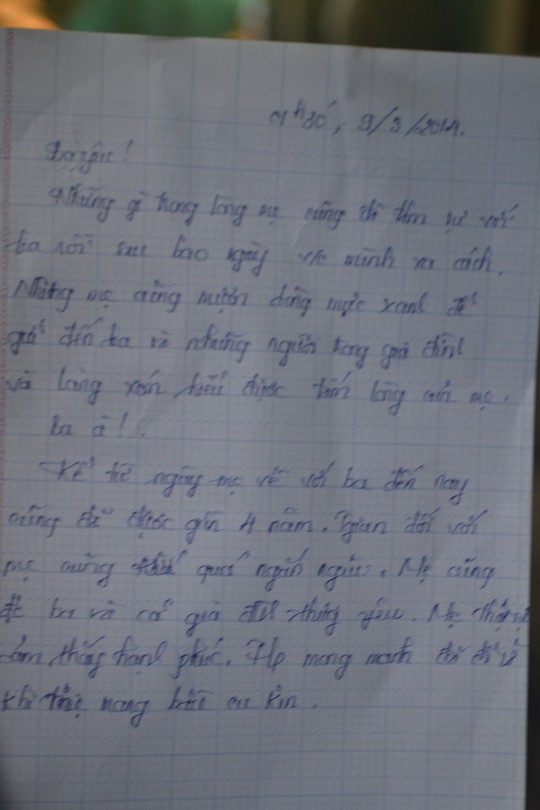 01h30, 9/3/2014.
Ba yêu!
Những gì trong lòng mẹ cũng đã tâm sự với
ba rồi sau bao ngày v/c mình xa cách.
Nhưng mẹ cũng mượn dòng mực xanh để
gửi đến ba và những người trong gia đình
và làng xóm hiểu được tấm lòng của mẹ.
Ba à!.
Kể từ ngày mẹ về với ba đến nay
cũng đã được gần 4 năm. Tgian đối với
mẹ cũng quá ngắn ngủi. Mẹ cũng
đc ba và cả gia đình thương yêu. Mẹ
cảm thấy hạnh phúc. Hp mong manh đã
khi mang